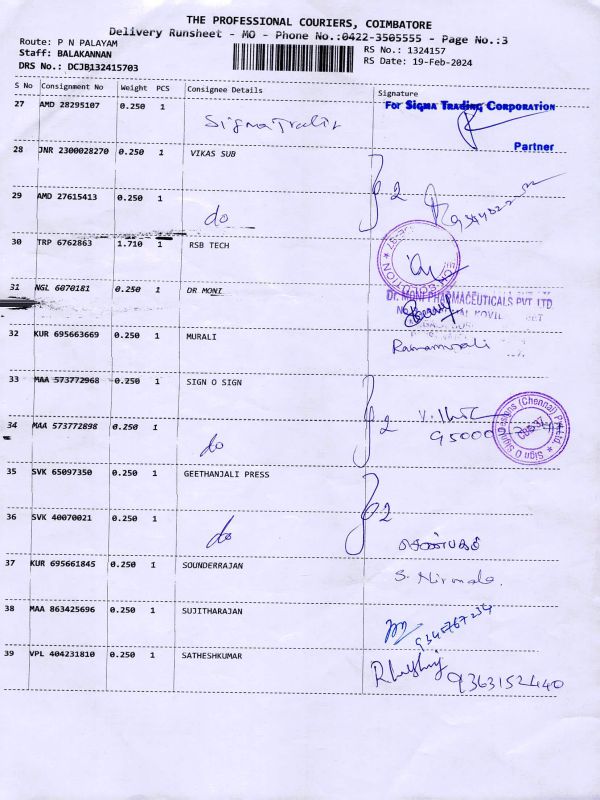 THE PROFESSIONAL COURIERS, COIMBATORE
Delivery Runsheet - MO - Phone No.:0422-3505555 - Page No.:3
Route: P N PALAYAM
RS No.: 1324157
Staff: BALAKANNAN
RS Date: 19-Feb-2024
DRS No.: DCJB132415703
S No Consignment No Weight PCS Consignee Details Signature
27 AMD 28295107 0.250 1
For SIGMA TRADING CORPORATION
Partner
28 JNR 2300028270 0.250 1 VIKAS SUB
2
29 AMD 27615413 0.250 1 do
30 TRP 6762863 1.710 1 RSB TECH
31 NGL 6070181 0.250 1 DR MONI
PHARMACEUTICALS PVT LTD
32 KUR 695663669 0.250 1 MURALI
33 MAA 573772968 0.250 1 SIGN O SIGN
2
34 MAA 573772898 0.250 1 do
Sign O Sign (Chennai) Pvt Ltd
35 SVK 65097350 0.250 1 GEETHANJALI PRESS
2
36 SVK 40070021 0.250 1 do
37 KUR 695661845 0.250 1 SOUNDERRAJAN
S. Nirmala.
38 MAA 863425696 0.250 1 SUJITHARAJAN
39 VPL 404231810 0.250 1 SATHESHKUMAR
9363152440